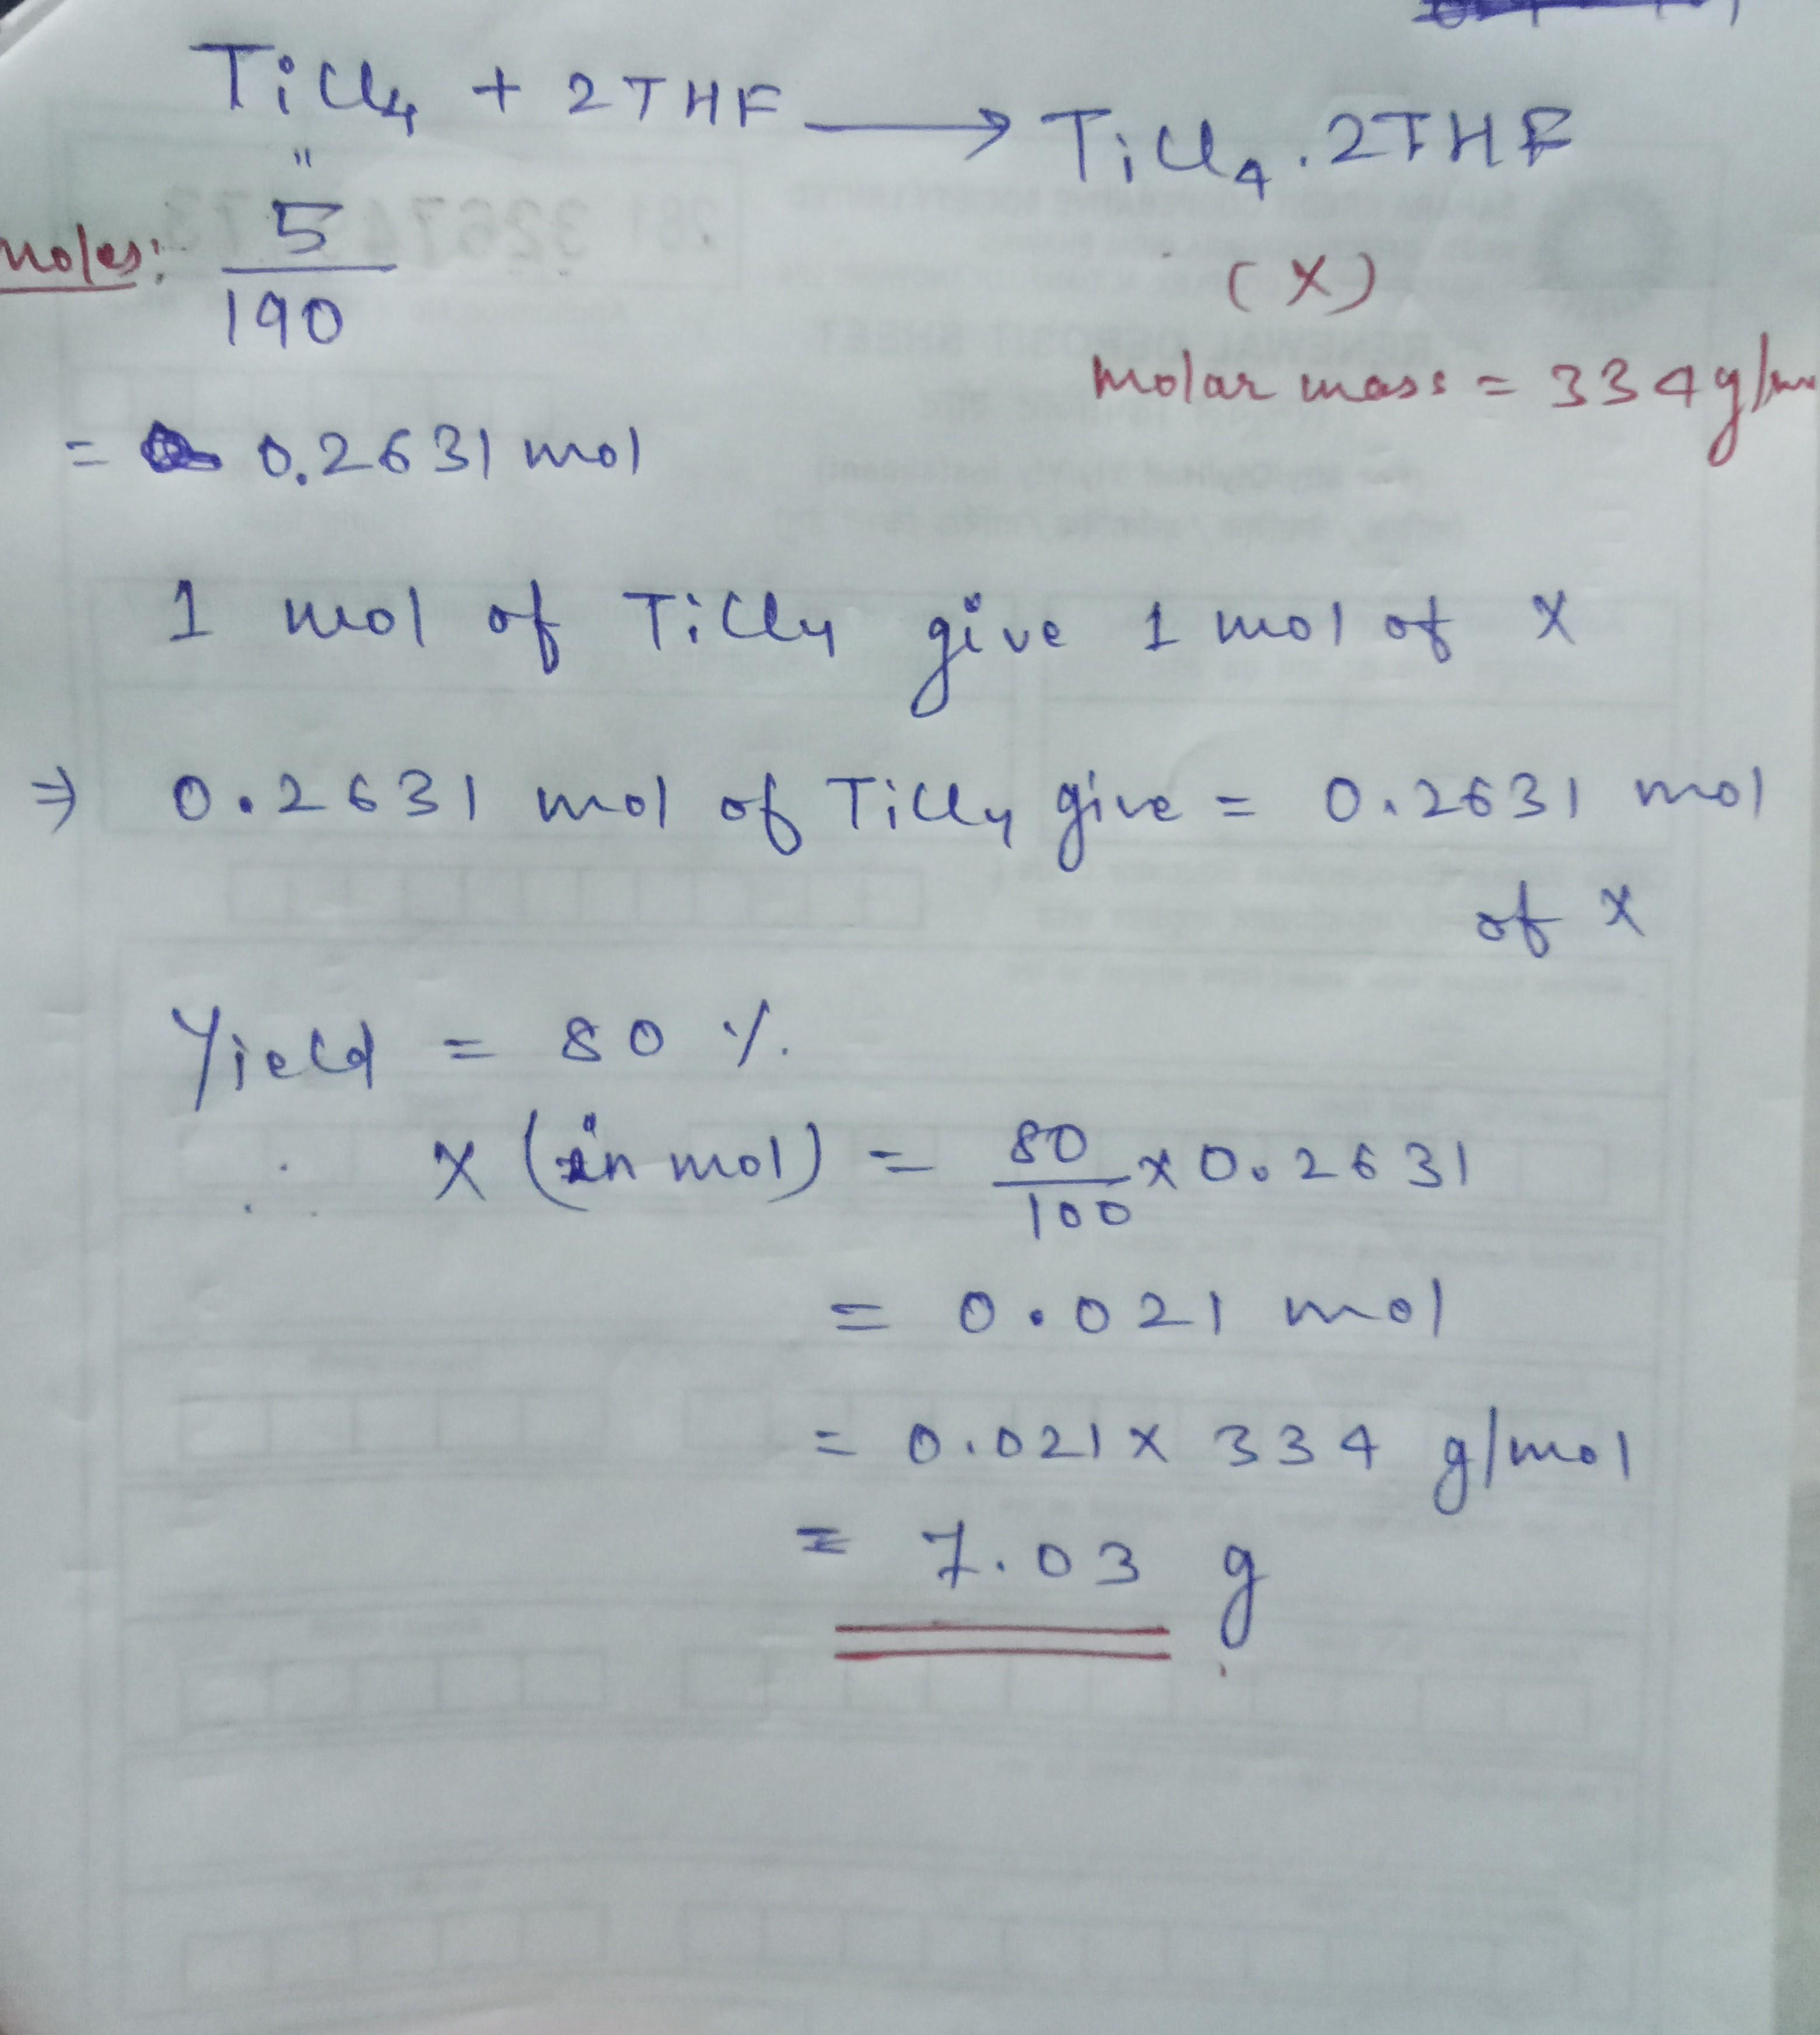 TiCl4 + 2THF → TiCl4.2THF
"
moles: 5/190
(X)
molar mass = 334 g/
= 0.2631 mol
1 mol of TiCl4 give 1 mol of X
⇒ 0.2631 mol of TiCl4 give = 0.2631 mol
of X
Yield = 80 %.
∴ X (in mol) = 80/100 x 0.2631
= 0.021 mol
= 0.021 x 334 g/mol
= 7.03 g